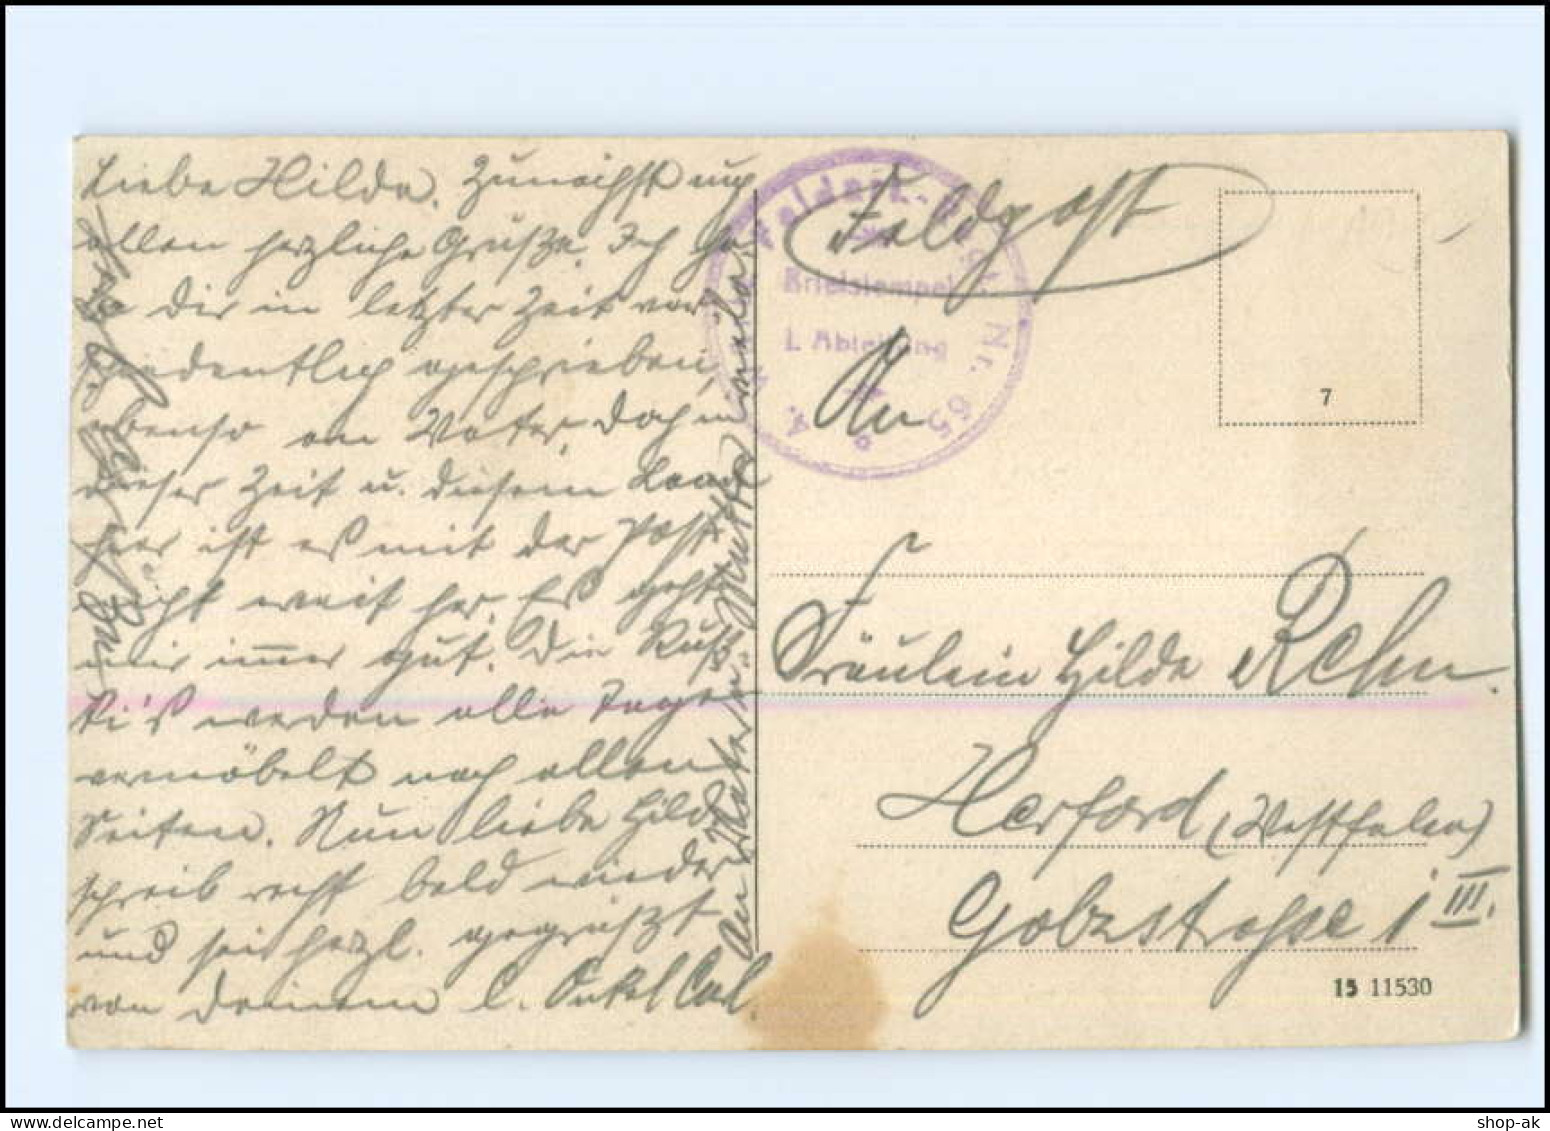 Liebe Hilde. Zunächst mg
allen herzliche Grüße. Ich ha
be dir in letzter Zeit vor
schiedentlich geschrieben,
ebenso an Vater, doch in
dieser Zeit u. diesem Land
hier ist es mit der Post
nicht weit her. Es geht
mir immer gut. Die Ruß
ki's werden alle Tage
vermöbelt nach allen
Seiten. Nun liebe Hilde
schreib recht bald wieder
und sei herzl. gegrüßt
von deinem l. Onkel Carl.
An Vater u. Mutter
Feldpost
Feldart.
Nr. 65
Briefstempel
I. Abteilung
An
7
Fräulein Hilde Rehm.
Herford (Westfalen)
Gobzstrasse 1 III.
15 11530
shop-ak